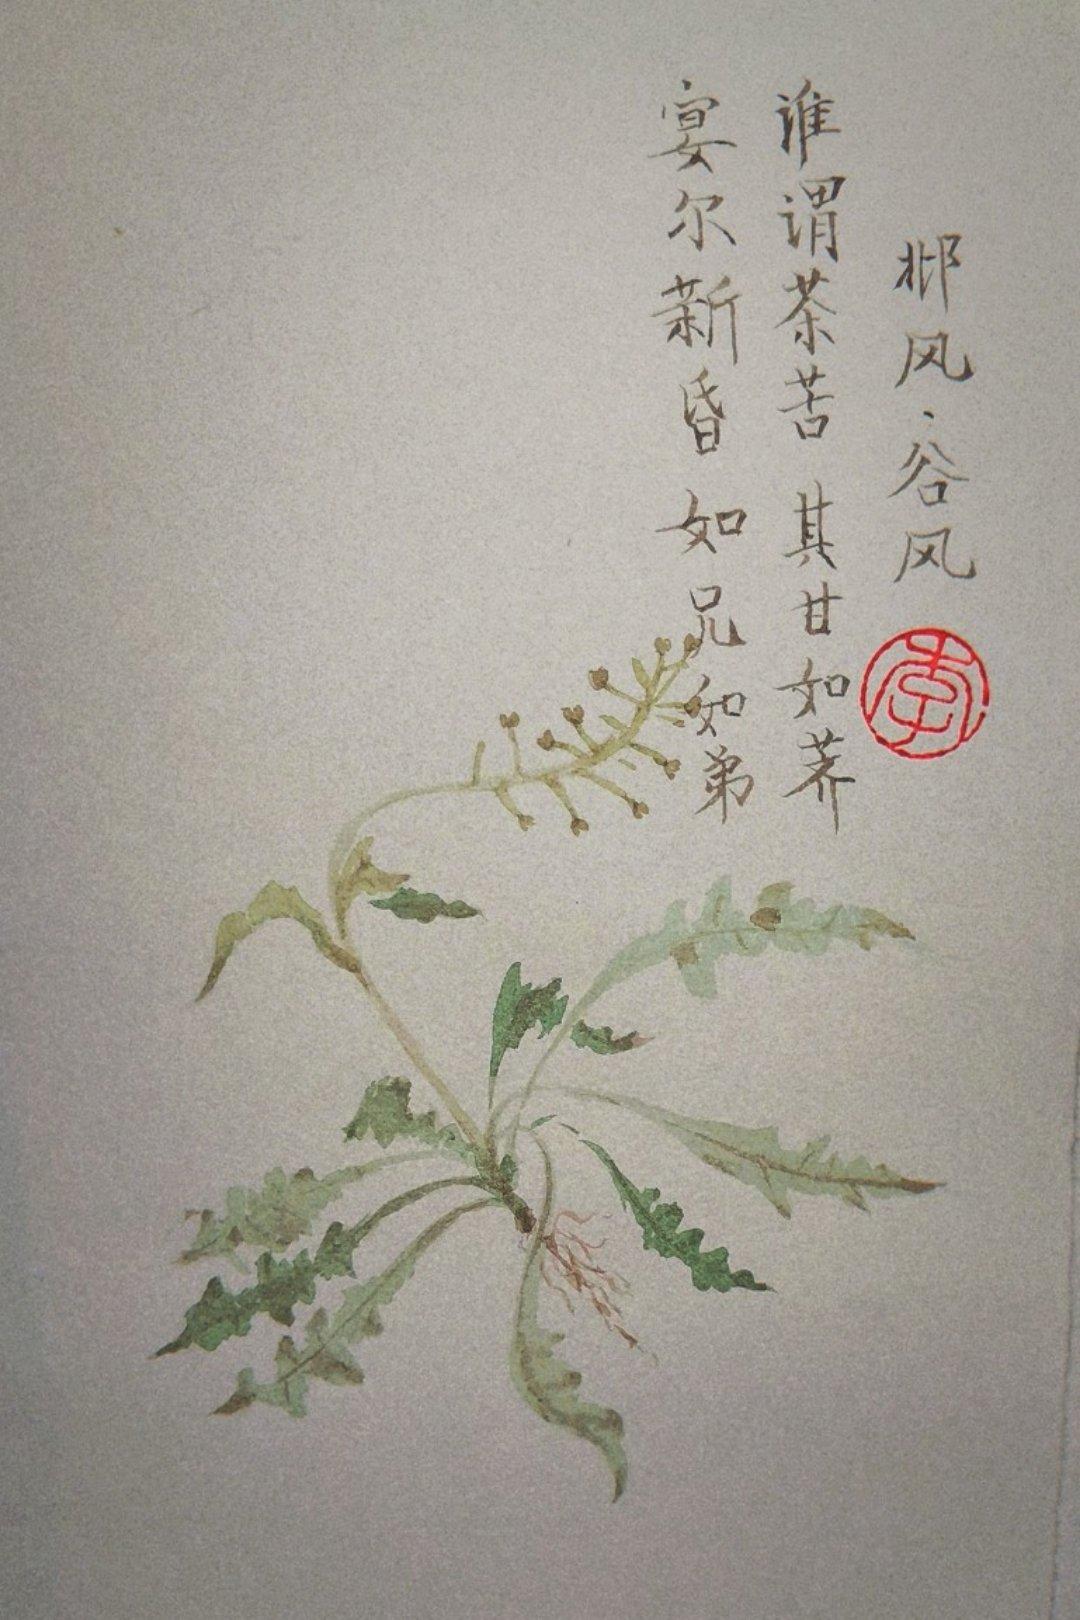 邶风·谷风
谁谓荼苦 其甘如荠
宴尔新昏 如兄如弟
李